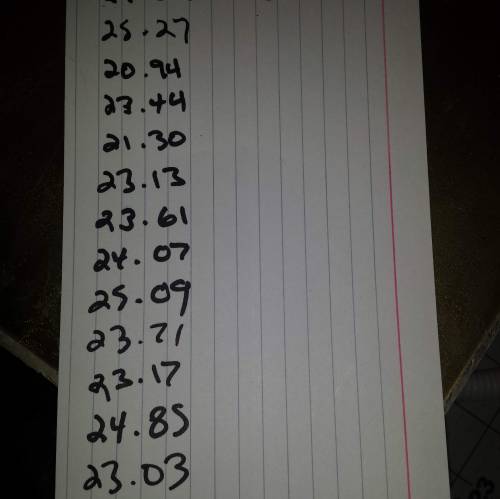 25.27
20.94
23.44
21.30
23.13
23.61
24.07
25.09
23.71
23.17
24.85
23.03